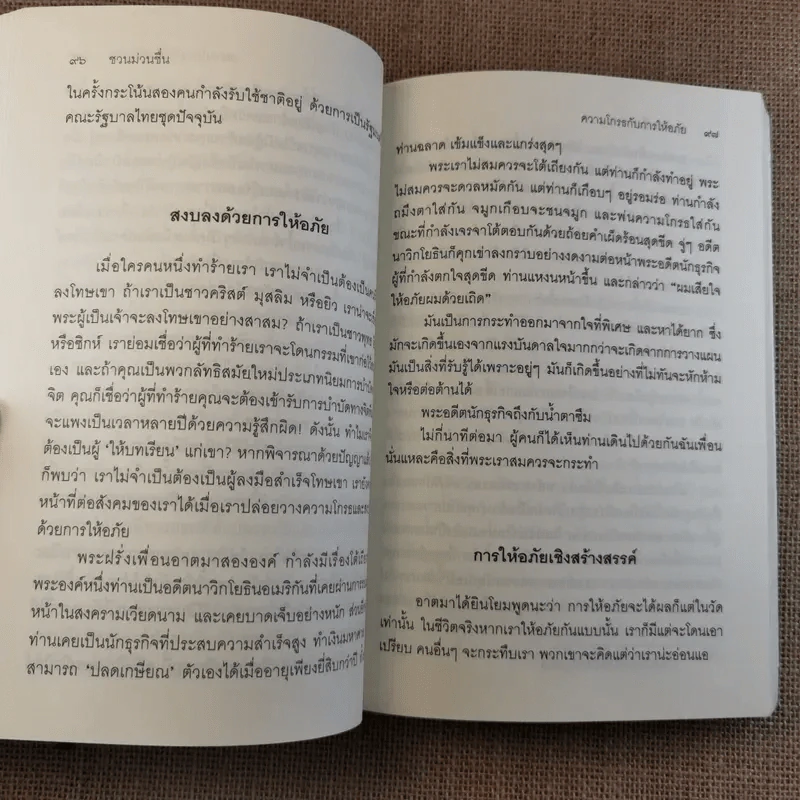 ๙๖ ชวนม่วนชื่น
ในครั้งกระโน้นสองคนกำลังรับใช้ชาติอยู่ ด้วยการเป็น
คณะรัฐบาลไทยชุดปัจจุบัน
สงบลงด้วยการให้อภัย
เมื่อใครคนหนึ่งทำร้ายเรา เราไม่จำเป็นต้องเป็น
ลงโทษเขา ถ้าเราเป็นชาวคริสต์ มุสลิม หรือยิว เราน่าจะ
พระผู้เป็นเจ้าจะลงโทษเขาอย่างสาสม? ถ้าเราเป็นชาวพุทธ
หรือซิกห์ เราย่อมเชื่อว่าผู้ที่ทำร้ายเราจะโดนกรรมที่เขาก่อ
เอง และถ้าคุณเป็นพวกลัทธิสมัยใหม่ประเภทนิยมการบำบัด
จิต คุณก็เชื่อว่าผู้ที่ทำร้ายคุณจะต้องเข้ารับการบำบัดทางจิต
จะแพงเป็นเวลาหลายปีด้วยความรู้สึกผิด! ดังนั้น ทำไม
ต้องเป็นผู้ ‘ให้บทเรียน’ แก่เขา? หากพิจารณาด้วยปัญญา
ก็พบว่า เราไม่จำเป็นต้องเป็นผู้ลงมือสำเร็จโทษเขา เรายัง
หน้าที่ต่อสังคมของเราได้เมื่อเราปล่อยวางความโกรธและ
ด้วยการให้อภัย
พระฝรั่งเพื่อนอาตมาสององค์ กำลังมีเรื่องโต้เถียง
พระองค์หนึ่งท่านเป็นอดีตนาวิกโยธินอเมริกันที่เคยผ่านการ
หน้าในสงครามเวียดนาม และเคยบาดเจ็บอย่างหนัก ส่วน
ท่านเคยเป็นนักธุรกิจที่ประสบความสำเร็จสูง ทำเงินมหาศาล
สามารถ ‘ปลดเกษียณ’ ตัวเองได้เมื่ออายุเพียงยี่สิบกว่าปี
ความโกรธกับการให้อภัย ๙๗
ท่านฉลาด เข้มแข็งและแกร่งสุดๆ
พระเราไม่สมควรจะโต้เถียงกัน แต่ท่านก็กำลังทำอยู่ พระ
ไม่สมควรจะดวลหมัดกัน แต่ท่านก็เกือบๆ อยู่รอมร่อ ท่านกำลัง
ถมึงตาใส่กัน จมูกเกือบจะชนจมูก และพ่นความโกรธใส่กัน
ขณะที่กำลังเจรจาโต้ตอบกันด้วยถ้อยคำเผ็ดร้อนสุดขีด จู่ๆ อดีต
นาวิกโยธินก็คุกเข่าลงกราบอย่างงดงามต่อหน้าพระอดีตนักธุรกิจ
ผู้ที่กำลังตกใจสุดขีด ท่านแหงนหน้าขึ้น และกล่าวว่า “ผมเสียใจ
ให้อภัยผมด้วยเถิด”
มันเป็นการกระทำออกมาจากใจที่พิเศษ และหาได้ยาก ซึ่ง
มักจะเกิดขึ้นเองจากแรงบันดาลใจมากกว่าจะเกิดจากการวางแผน
มันเป็นสิ่งที่รับรู้ได้เพราะอยู่ๆ มันก็เกิดขึ้นอย่างที่ไม่ทันจะหักห้าม
ใจหรือต่อต้านได้
พระอดีตนักธุรกิจถึงกับน้ำตาซึม
ไม่กี่นาทีต่อมา ผู้คนก็ได้เห็นท่านเดินไปด้วยกันฉันเพื่อน
นั่นแหละคือสิ่งที่พระเราสมควรจะกระทำ
การให้อภัยเชิงสร้างสรรค์
อาตมาได้ยินโยมพูดนะว่า การให้อภัยจะได้ผลก็แต่ในวัด
เท่านั้น ในชีวิตจริงหากเราให้อภัยกันแบบนั้น เราก็มีแต่จะโดนเอา
เปรียบ คนอื่นๆ จะกระทืบเรา พวกเขาจะคิดแต่ว่าเราน่ะอ่อนแอ